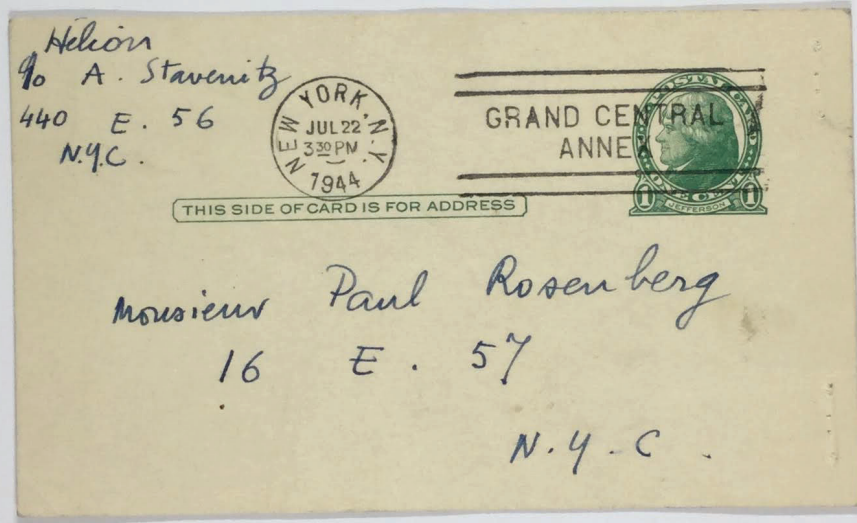 Hélion
c/o A. Stavenitz
440 E. 56
N.Y.C.
NEW YORK, N.Y.
JUL 22
3 30 PM
1944
GRAND CENTRAL
ANNEX
POSTAL CARD
ONE CENT
1 JEFFERSON 1
THIS SIDE OF CARD IS FOR ADDRESS
Monsieur Paul Rosenberg
16 E. 57
N.Y.C.